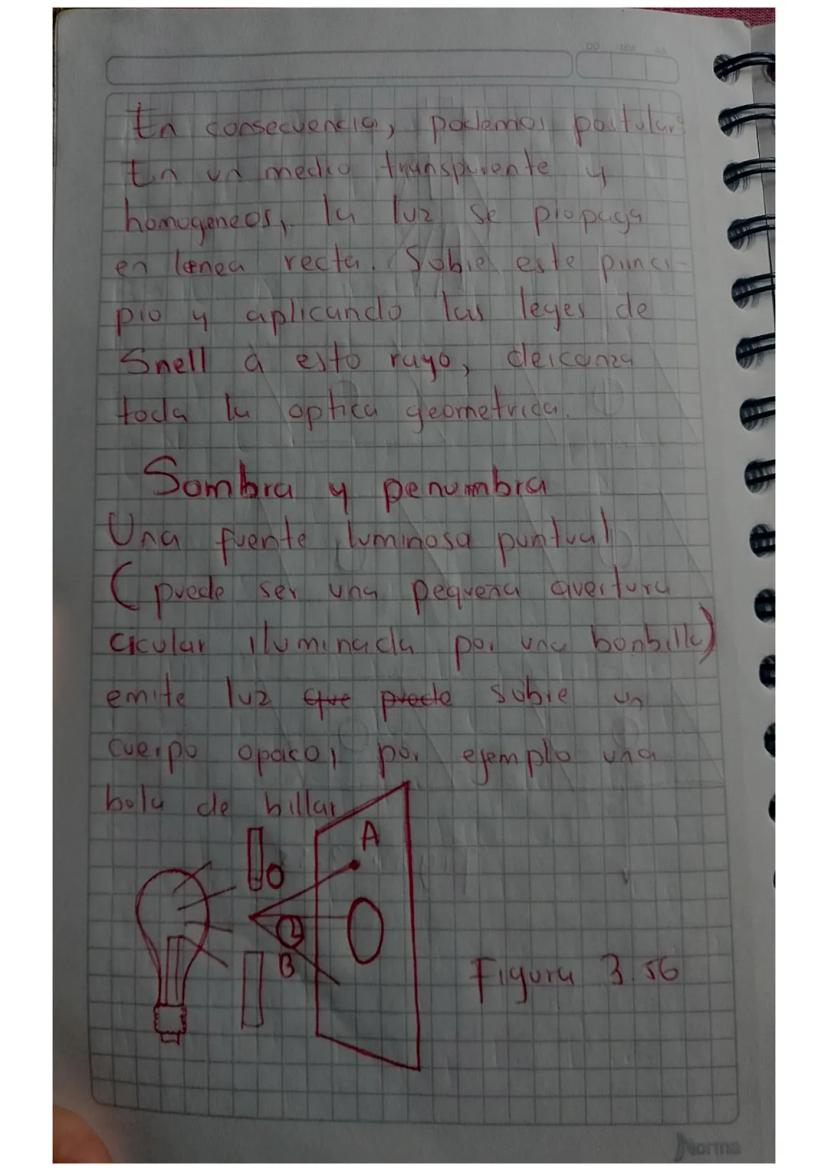 En consecuencia, podemos postular
En un medio transparente y
homogeneos, la luz se propaga
en lenea recta. Sobre este princi-
pio y aplicando las leyes de
Snell a esto rayo, descanza
toda la optica geometrida.
Sombra y penumbra
Una fuente luminosa puntual
(puede ser una pequeña avertura
cicular iluminada por una bonbilla)
emite luz que puede sobre un
cuerpo opaco, por ejemplo una
bola de billar
A
O
B
Figura 3.56
Norma